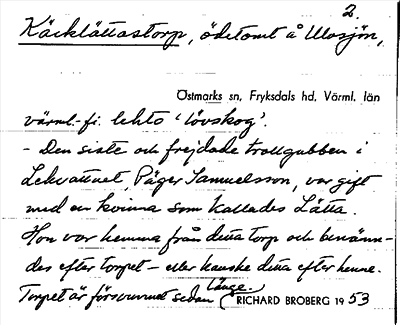 2.
Käcklättastorp, ödetomt å Ulvsjön,
Östmarks sn, Fryksdals hd, Värml. län
värml.-fi. lehto 'lövskog'.
- Den siste och frejdade trollgubben i
Lekvattnet, Påger Samuelsson, var gift
med en kvinna som kallades Lätta.
Hon var hemma från detta torp och benämn-
des efter torpet - eller kanske detta efter henne.
Torpet är försvunnet sedan länge.
RICHARD BROBERG 1953